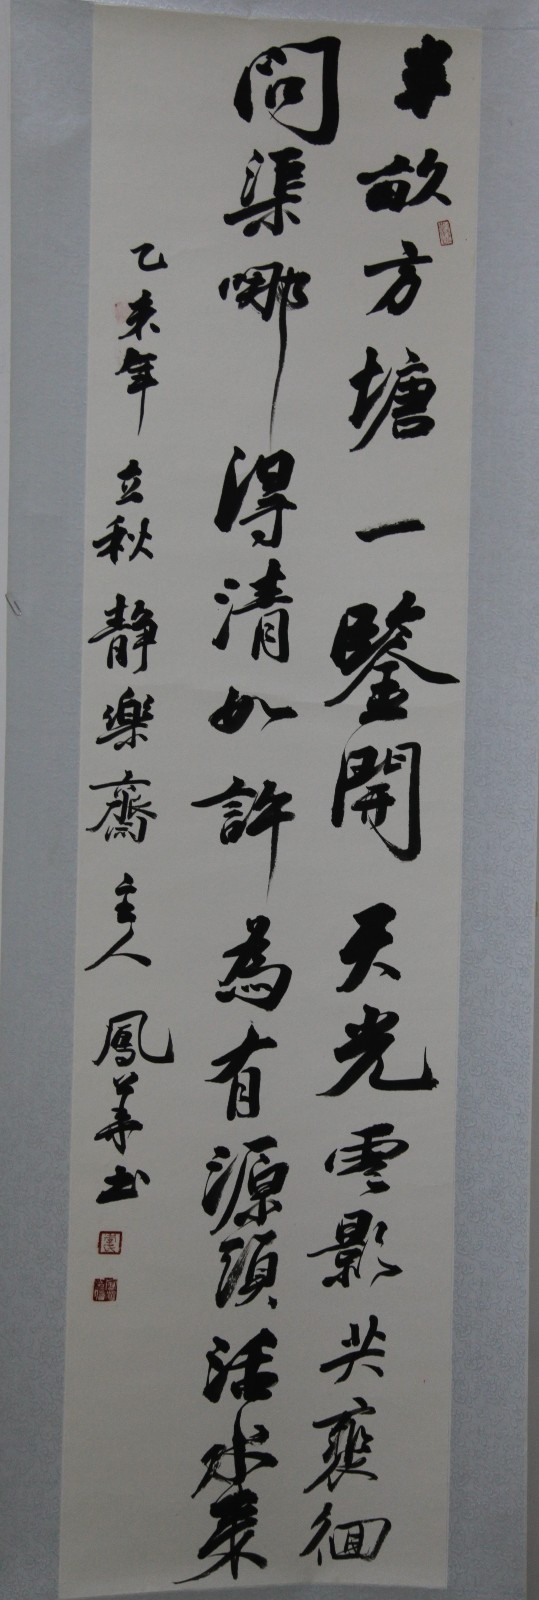 半畝方塘一鑒開天光雲影共裵徊
問渠哪得清如許為有源頭活水来
乙未年立秋靜樂齋主人鳳華书